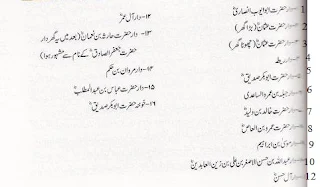 1 ۔۔دار حضرت ابوایوب انصاریؓ
2 ۔۔دار حضرت عثمانؓ (بڑا گھر)
3 ۔۔دار حضرت عثمانؓ (چھوٹا گھر)
4 ۔۔دار ریطہ
5 ۔۔دار حضرت ابوبکر صدیقؓ
6 ۔۔دار جبلہ بن عمرو الساعدی
7 ۔۔دار حضرت خالد بن ولیدؓ
8 ۔۔دار حضرت عمرو بن العاصؓ
9 ۔۔دار موسیٰ بن ابراہیم
10 ۔۔دار عبداللہ بن حسن الاصغر بن علی بن زین العابدین
12 ۔۔دار آل حسنؓ
۱۲۔۔دار آل عمرؓ
۱۳۔۔دار حضرت حارثہ بن نعمانؓ (بعد میں یہ گھر دار
حضرت جعفر الصادقؒ کے نام سے مشہور ہوا)
۱۴۔۔دار مروان بن حکم
۱۵۔۔دار حضرت عباس بن عبدالمطلبؓ
۱۶۔۔خوخہ حضرت ابوبکر صدیقؓ